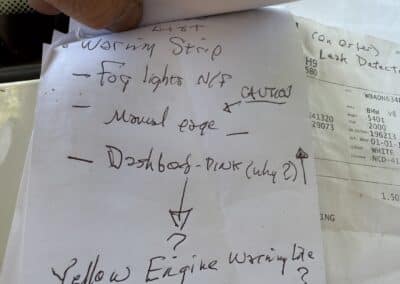 Warning Strip
- Fog lights N/F
CAUTION
- Manual eage -
- Dashboard - PINK (why?)
?
Yellow Engine Warning Lite
?
(on order)
Leak Detecto
H9
580
BMW
5401
41320
2000
29073
196213
01-01-1
WHITE
NCD-41
1.50
ING